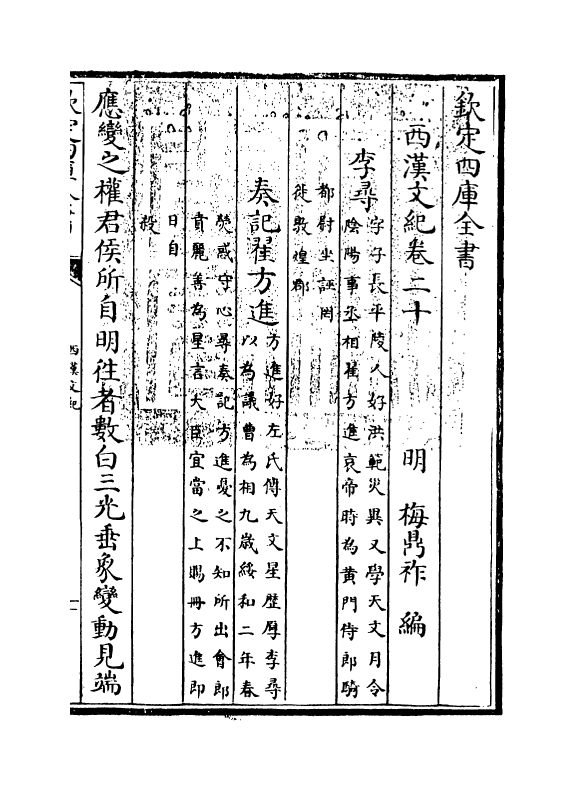 欽定四庫全書
西漢文紀卷二十
明 梅鼎祚 編
李尋
字子長平陵人好洪範災異又學天文月令
陰陽事丞相翟方進哀帝時為黄門侍郎騎
都尉坐誣罔
徙敦煌郡
奏記翟方進
方進好左氏傳天文星歴厚李尋
以為議曹為相九歳綏和二年春
熒惑守心尋奏記方進憂之不知所出會郎
賁麗善為星言大臣宜當之上賜冊方進即
日自
殺
應變之權君侯所自明往者數白三光垂象變動見端
欽定四庫全書
西漢文紀
一